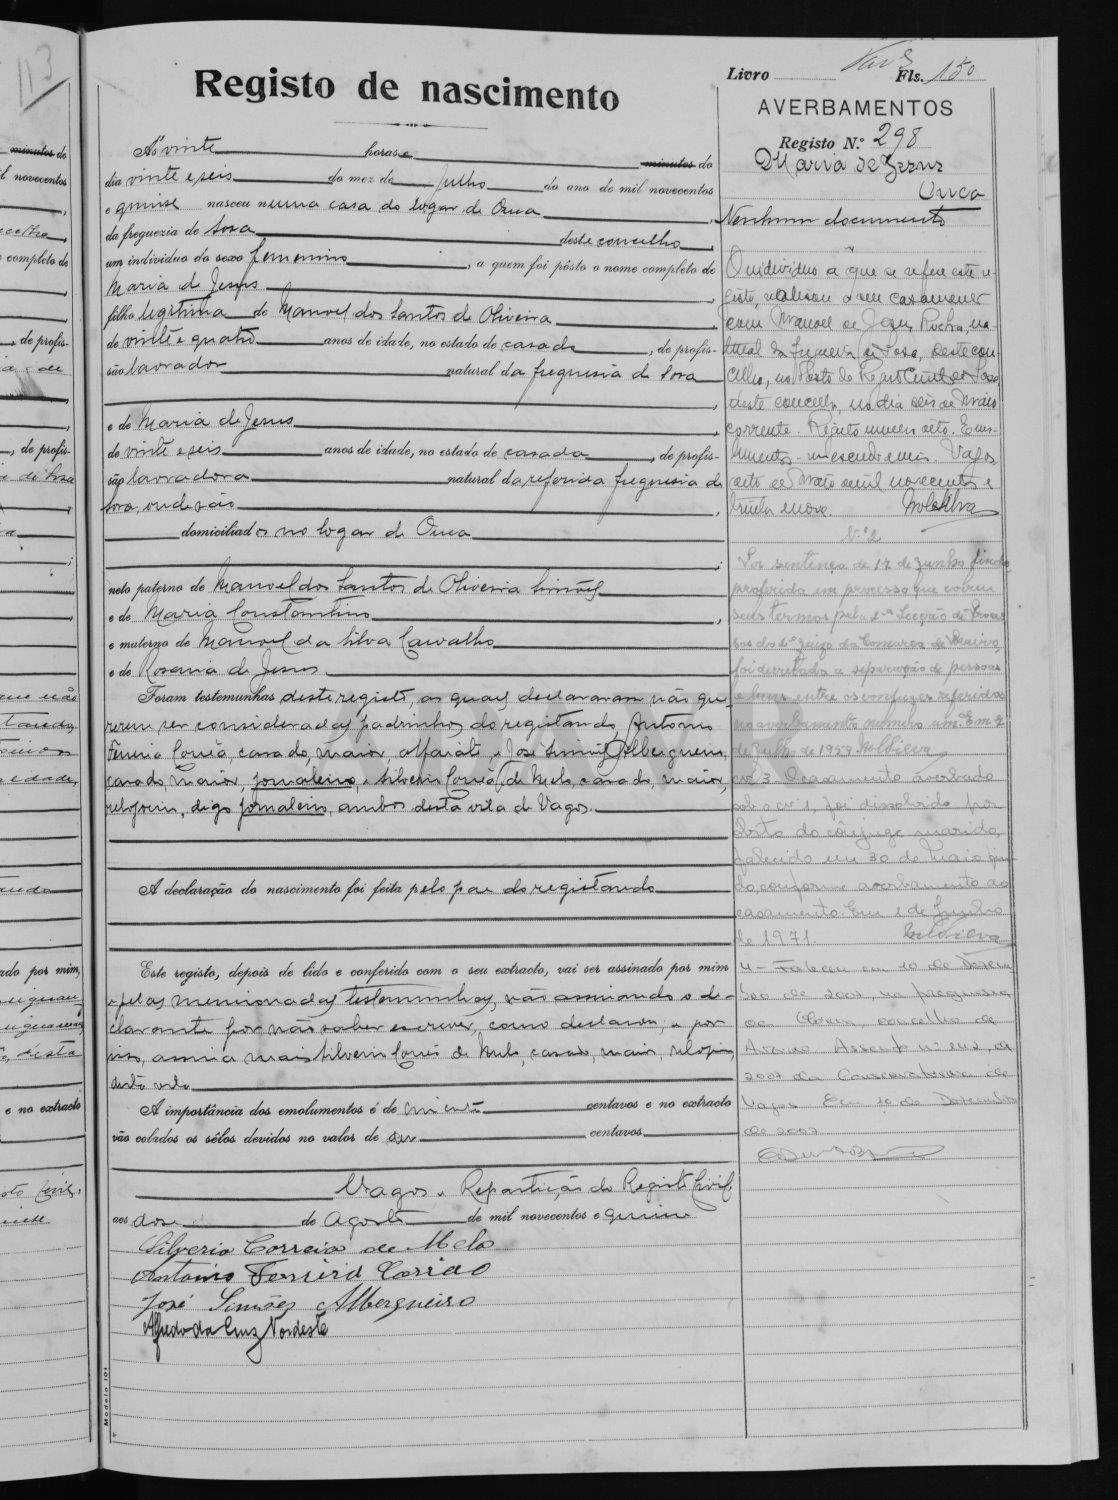 113
Livro Fls. 150
Registo de nascimento
AVERBAMENTOS
Registo N.º 298
Maria de Jesus
Ouca
Nenhum documento
Ás vinte horas e minutos do
dia vinte e seis do mez de Julho do ano de mil novecentos
e quinse nasceu numa casa do logar de Ouca,
da freguezia de Sosa deste concelho,
um individuo do sexo femenino, a quem foi pôsto o nome completo de
Maria de Jesus,
filha legitima de Manuel dos Santos de Oliveira
de vinte e quatro anos de idade, no estado de casado, de profis-
são lavrador natural da freguesia de Sosa
e de Maria de Jesus
de vinte e seis anos de idade, no estado de casada, de profis-
são lavradora natural da referida freguesia de
Sosa, onde são
domiciliados no logar de Ouca
neto paterno de Manuel dos Santos de Oliveira Simões
e de Maria Constantino,
e materno de Manuel da Silva Carvalho
e de Rosaria de Jesus
Foram testemunhas deste registo, as quaes declararam não que-
rerem ser consideradas padrinhos do registando, Antonio
Ferreira Corrêa, casado, maior, alfaiate, e José Simões Albergueiro,
casado, maior, jornaleiro, e Silverio Corrêa de Melo, casado, maior,
relojoeiro, digo jornaleiro, ambos desta vila de Vagos.
A declaração do nascimento foi feita pelo pae do registando
Este registo, depois de lido e conferido com o seu extracto, vai ser assinado por mim
e pelas mencionadas testemunhas, não assinando o de-
clarante por não saber escrever, como declarou, e por
isso, assina mais Silverio Corrêa de Melo, casado, maior, relojoeiro,
desta vila
A importância dos emolumentos é de centavos e no extracto
vão colados os sêlos devidos no valor de centavos
Vagos e Repartição do Registo Civil,
aos dose de Agosto de mil novecentos e quinse
Silverio Correia de Melo
Antonio Ferreira Corrêa
José Simões Albergueiro
Alfredo da Cruz Nordeste
Modelo 101
O individuo a que se refere este re-
gisto, realisou o seu casamento
com Manuel de Jesus Rocha, na-
tural da freguesia de Sosa, deste con-
celho, no Posto do Registo Civil de Sosa,
deste concelho, no dia seis de Maio
corrente. Registo numero oito. Emo-
lumentos - um escudo e meio. Vagos
oito de Maio de mil novecentos e
trinta e nove.
N.º 2
Por sentença de 17 de Junho findo
proferida em processo que correu
seus termos pela 2ª Secção de Proces-
sos do 2º Juizo da Comarca de Aveiro,
foi decretada a separação de pessoas
e bens entre os conjuges referidos
no averbamento numero um. Em 2
de Julho de 1959
nº 3. O casamento averbado
sob o nº 1, foi dissolvido por
obito do cônjuge marido,
falecido em 30 de Maio fin-
do, conforme averbamento ao
casamento. Em 1 de Junho
de 1971.
4 - Faleceu em 10 de Dezem-
bro de 2007, na freguesia
de concelho de
Aveiro Assento nº 242, de
2007 da Conservatória de
Vagos Em 10 de Dezembro
de 2007